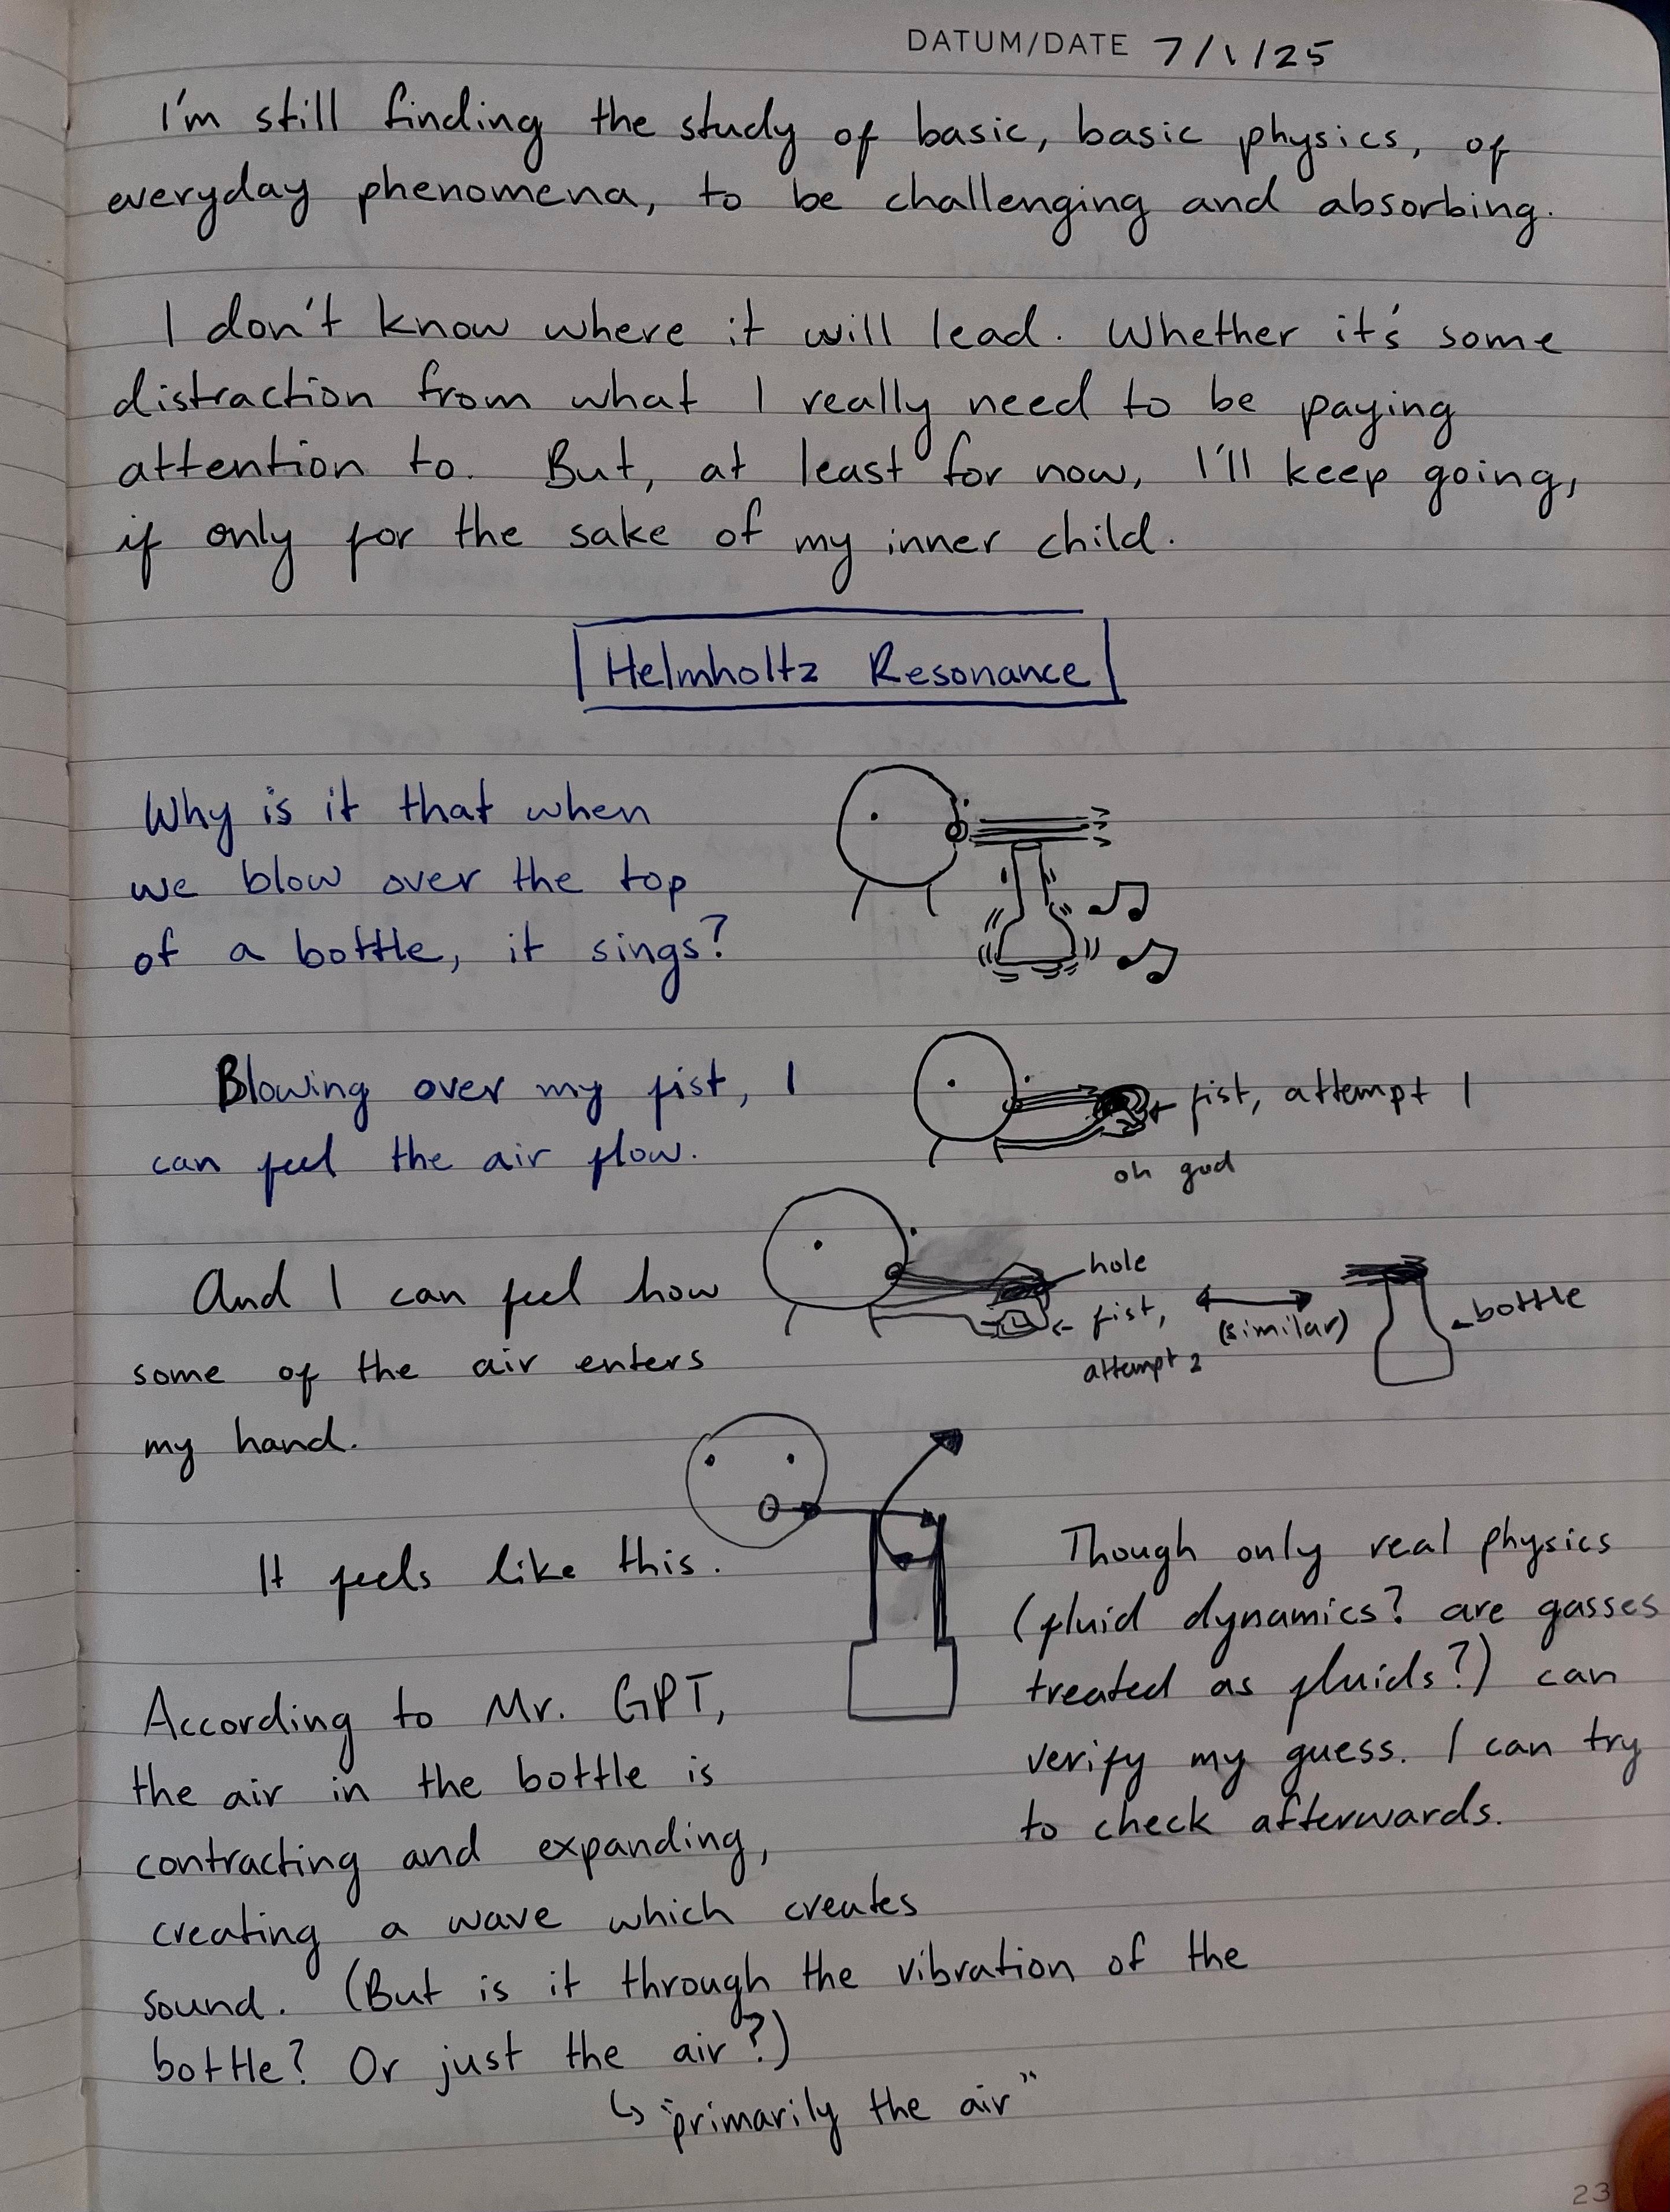 DATUM/DATE 7/1/25
I'm still finding the study of basic, basic physics, of
everyday phenomena, to be challenging and absorbing.
I don't know where it will lead. Whether it's some
distraction from what I really need to be paying
attention to. But, at least for now, I'll keep going,
if only for the sake of my inner child.
Helmholtz Resonance
Why is it that when
we blow over the top
of a bottle, it sings?
Blowing over my fist, I
can feel the air flow.
fist, attempt 1
oh god
And I can feel how
some of the air enters
my hand.
hole
fist,
attempt 2
(similar)
bottle
It feels like this.
Though only real physics
(fluid dynamics? are gasses
treated as fluids?) can
verify my guess. I can try
to check afterwards.
According to Mr. GPT,
the air in the bottle is
contracting and expanding,
creating a wave which creates
sound. (But is it through the vibration of the
bottle? Or just the air?)
↳ "primarily the air"
23